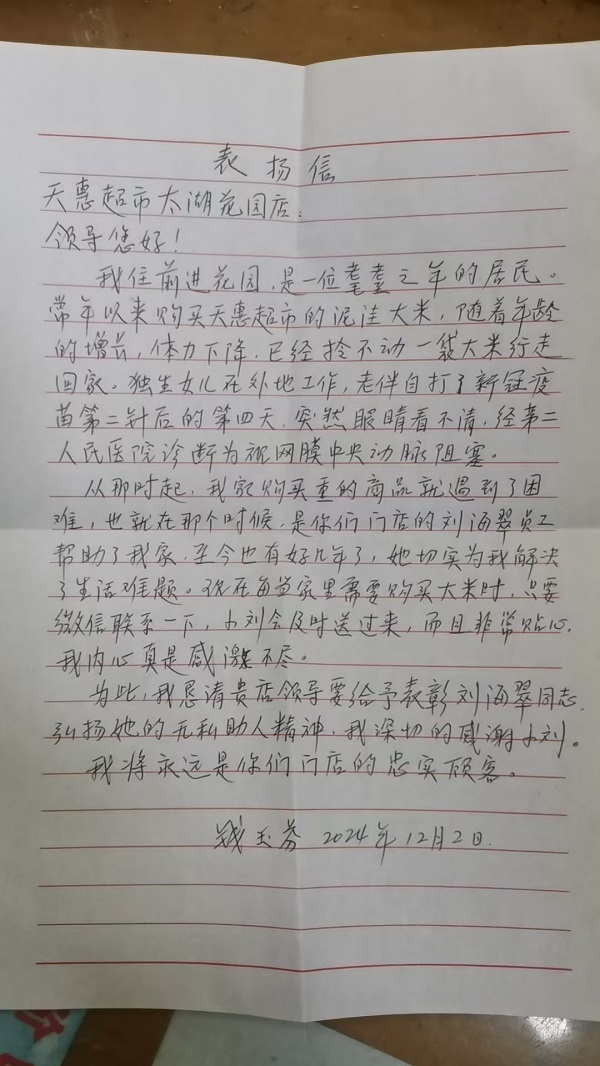 表扬信
天惠超市太湖花园店:
领导您好!
我住前进花园,是一位耄耋之年的居民。
常年以来购买天惠超市的泥洼大米,随着年龄
的增长,体力下降,已经拎不动一袋大米行走
回家。独生女儿在外地工作,老伴自打了新冠疫
苗第二针后的第四天,突然眼睛看不清,经第二
人民医院诊断为视网膜中央动脉阻塞。
从那时起,我家购买重的商品就遇到了困
难,也就在那个时候,是你们门店的刘海翠员工
帮助了我家,至今也有好几年了,她切实为我解决
了生活难题。现在每当家里需要购买大米时,只要
微信联系一下,小刘会及时送过来,而且非常贴心,
我内心真是感激不尽。
为此,我恳请贵店领导要给予表彰刘海翠同志,
弘扬她的无私助人精神,我深切的感谢小刘。
我将永远是你们门店的忠实顾客。
钱玉芬 2024年12月2日.